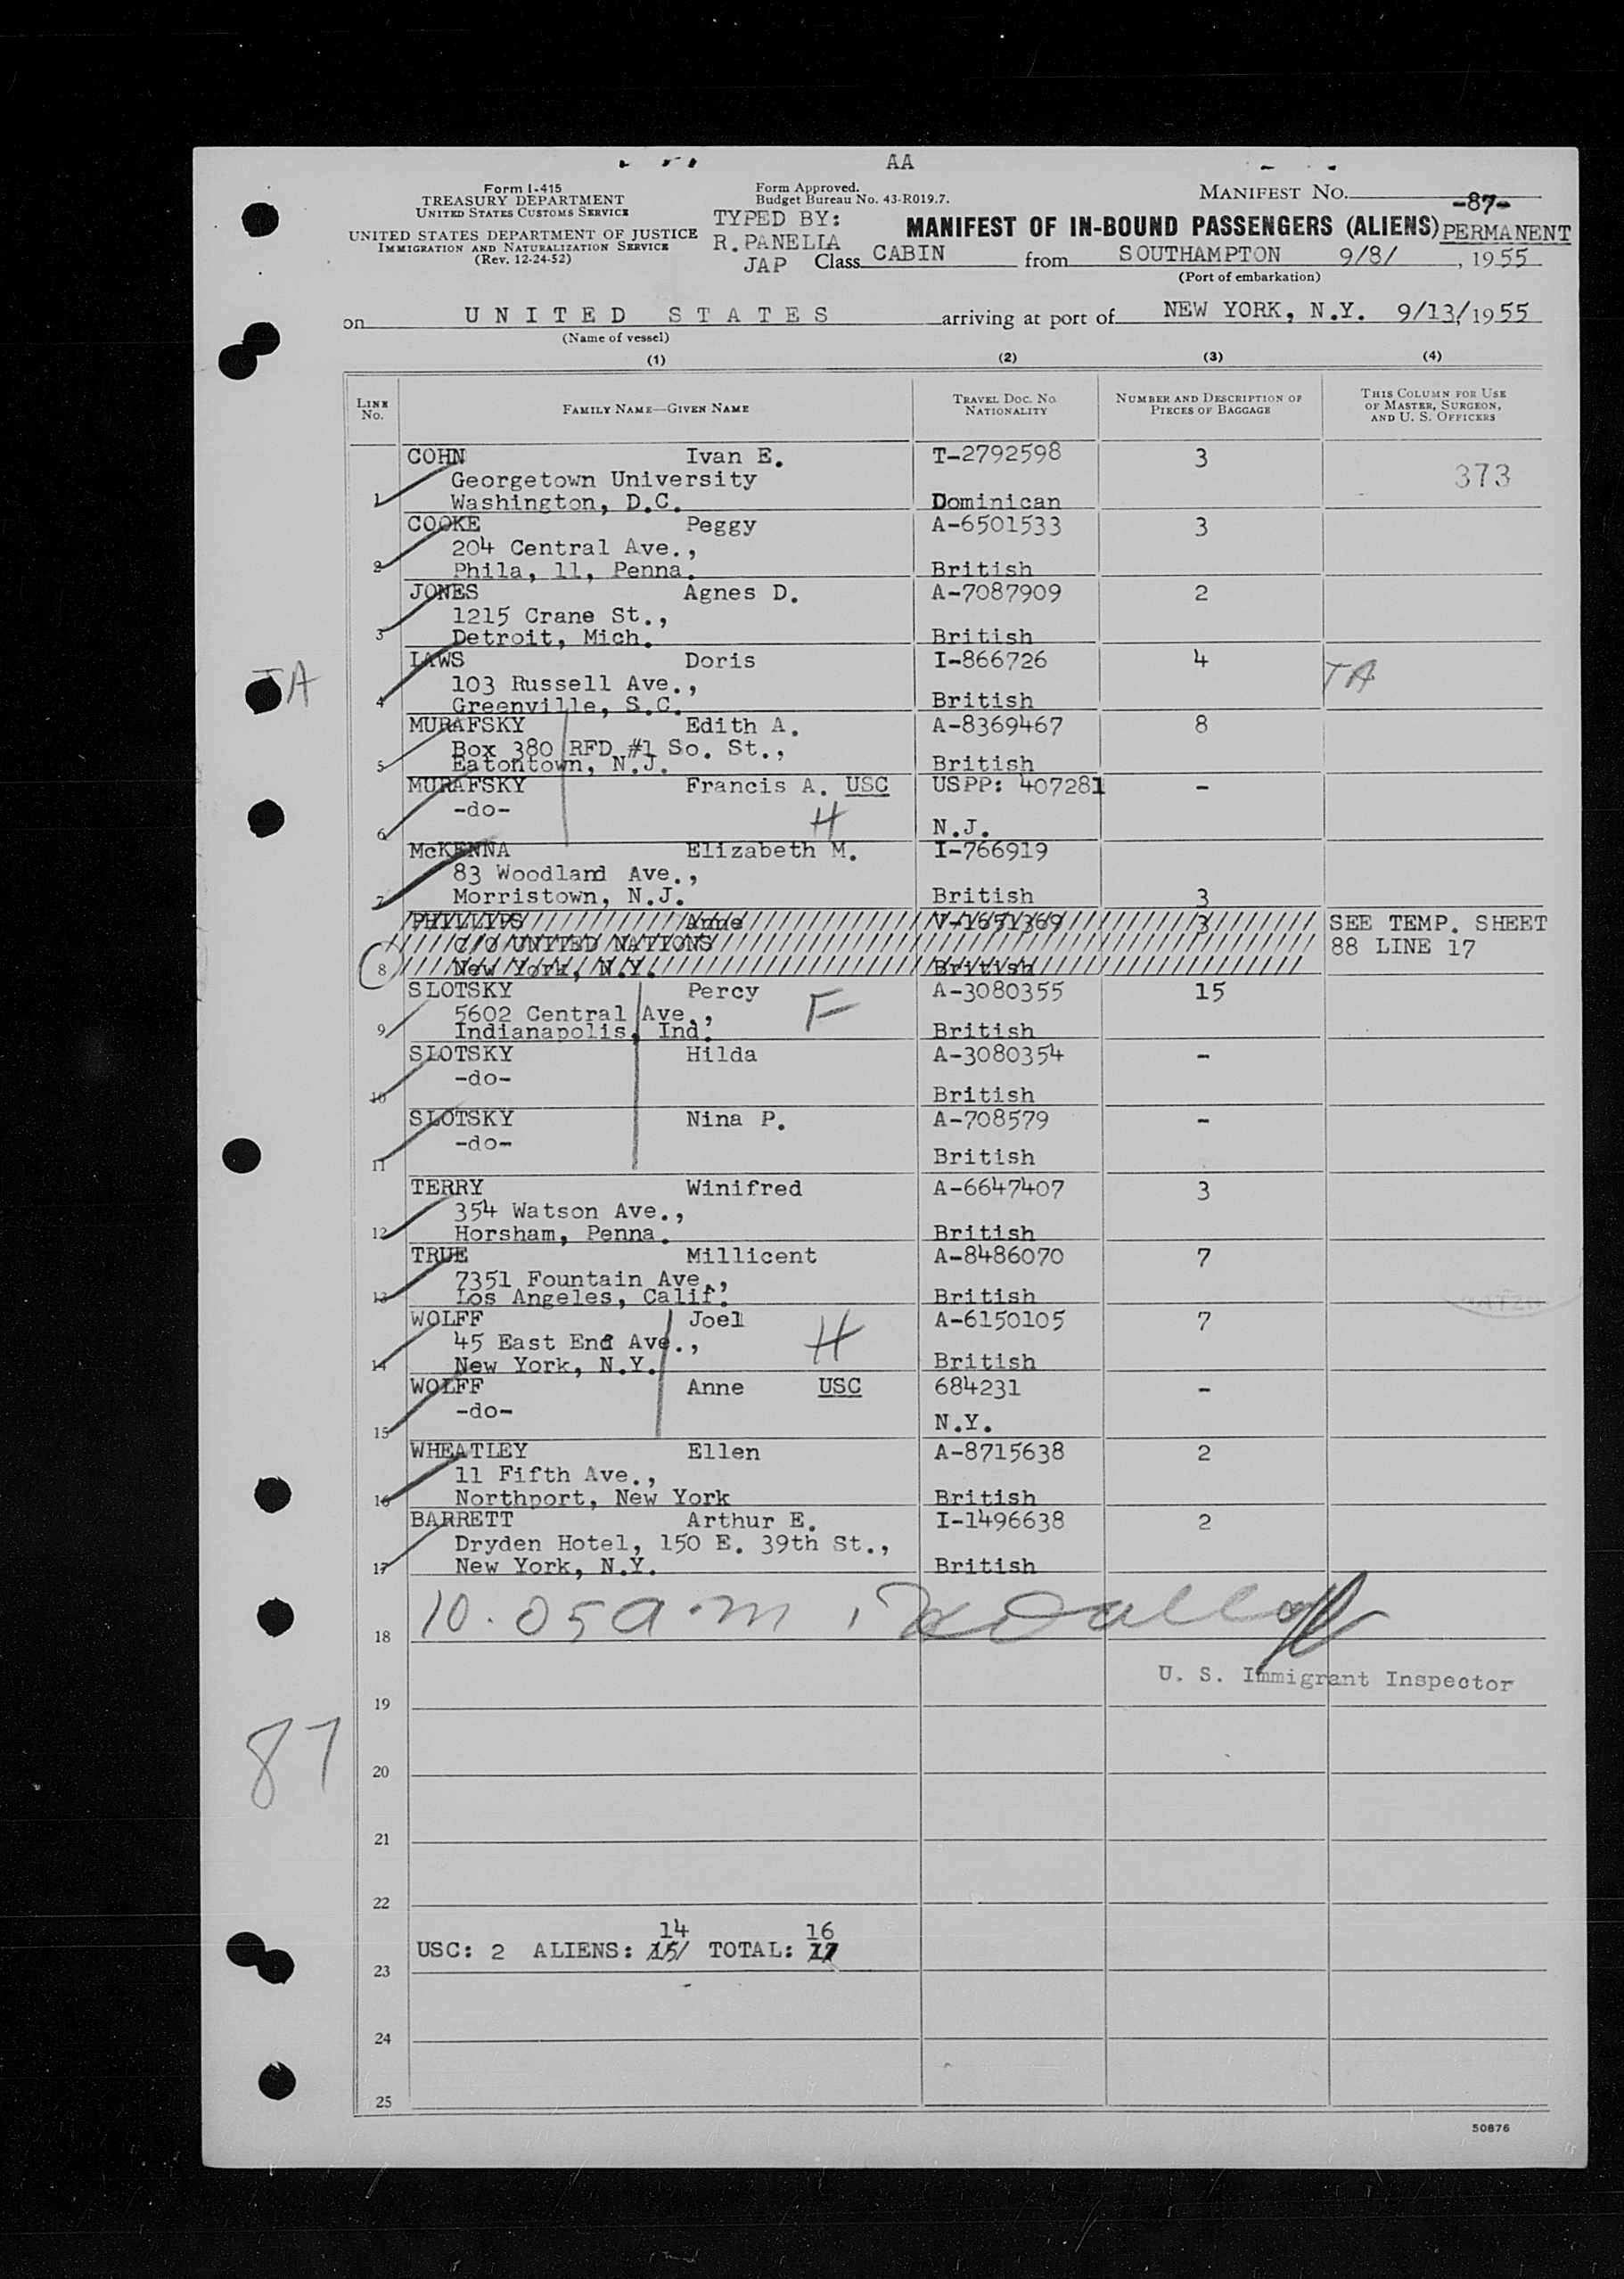 AA
Form I-415
TREASURY DEPARTMENT
UNITED STATES CUSTOMS SERVICE
UNITED STATES DEPARTMENT OF JUSTICE
IMMIGRATION AND NATURALIZATION SERVICE
(Rev. 12-24-52)
Form Approved.
Budget Bureau No. 43-R019.7.
TYPED BY:
R. PANELLA
JAP
MANIFEST NO. -87-
MANIFEST OF IN-BOUND PASSENGERS (ALIENS) PERMANENT
Class CABIN from SOUTHAMPTON 9/8/ , 1955
(Port of embarkation)
on UNITED STATES arriving at port of NEW YORK, N.Y. 9/13/1955
(Name of vessel)
(1) (2) (3) (4)
LINE No. FAMILY NAME—GIVEN NAME TRAVEL DOC. NO. NATIONALITY NUMBER AND DESCRIPTION OF PIECES OF BAGGAGE THIS COLUMN FOR USE OF MASTER, SURGEON, AND U. S. OFFICERS
COHN Ivan E. T-2792598 3
Georgetown University 373
1 Washington, D.C. Dominican
COOKE Peggy A-6501533 3
204 Central Ave.,
2 Phila, 11, Penna. British
JONES Agnes D. A-7087909 2
1215 Crane St.,
3 Detroit, Mich. British
LAWS Doris I-866726 4
JA 103 Russell Ave., JA
4 Greenville, S.C. British
MURAFSKY Edith A. A-8369467 8
Box 380 RFD #1 So. St.,
5 Eatontown, N.J. British
MURAFSKY Francis A. USC USPP: 407281 -
-do- H
6 N.J.
McKENNA Elizabeth M. I-766919
83 Woodland Ave.,
7 Morristown, N.J. British 3
PHILLIPS Anne V-1651369 3 SEE TEMP. SHEET
C/O UNITED NATIONS 88 LINE 17
8 New York, N.Y. British
SLOTSKY Percy F A-3080355 15
5602 Central Ave.,
9 Indianapolis, Ind. British
SLOTSKY Hilda A-3080354 -
-do-
10 British
SLOTSKY Nina P. A-708579 -
-do-
11 British
TERRY Winifred A-6647407 3
354 Watson Ave.,
12 Horsham, Penna. British
TRUE Millicent A-8486070 7
7351 Fountain Ave.,
13 Los Angeles, Calif. British
WOLFF Joel A-6150105 7
45 East End Ave., H
14 New York, N.Y. British
WOLFF Anne USC 684231 -
-do-
15 N.Y.
WHEATLEY Ellen A-8715638 2
11 Fifth Ave.,
16 Northport, New York British
BARRETT Arthur E. I-1496638 2
Dryden Hotel, 150 E. 39th St.,
17 New York, N.Y. British
10.05 a.m
18
U. S. Immigrant Inspector
19
87
20
21
22
14 16
USC: 2 ALIENS: 15 TOTAL: 17
23
24
25
50876